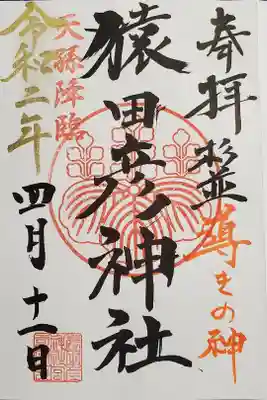 奉拝
杉並
導きの神
猿田彦神社
天孫降臨
令和二年
四月十一日